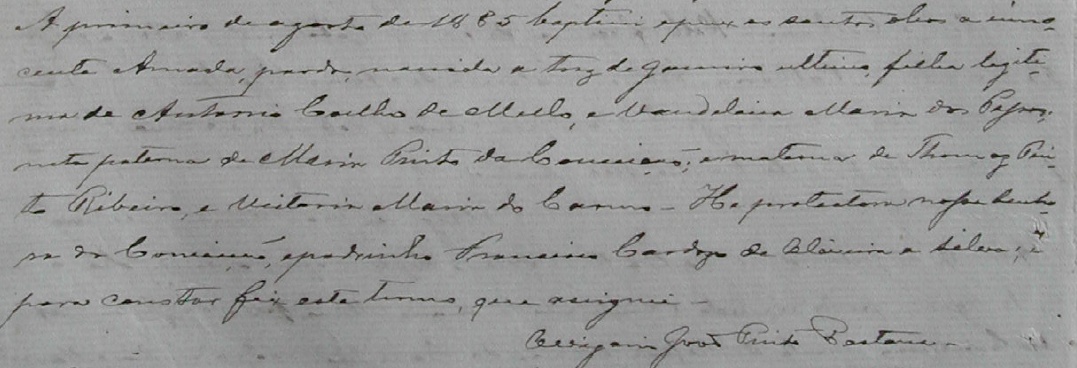 A primeiro de agosto de 1885 baptisei e puz os santos oleos a inno-
cente Amada, parda, nascida a torz de Janeiro ultimo, filha legiti-
ma de Antonio Coelho de Mello, e Maria dos
neta paterna de Maria Pinto da Conceição, e materna de Thomaz Pin-
to Ribeiro, e Victoria Maria do Carmo - He protectora nossa Senho-
ra da Conceição, e padrinho Francisco Cardozo de Oliveira e Silva; e
para constar fiz este termo, que assignei -
O Vigario João Pinto Pestana -